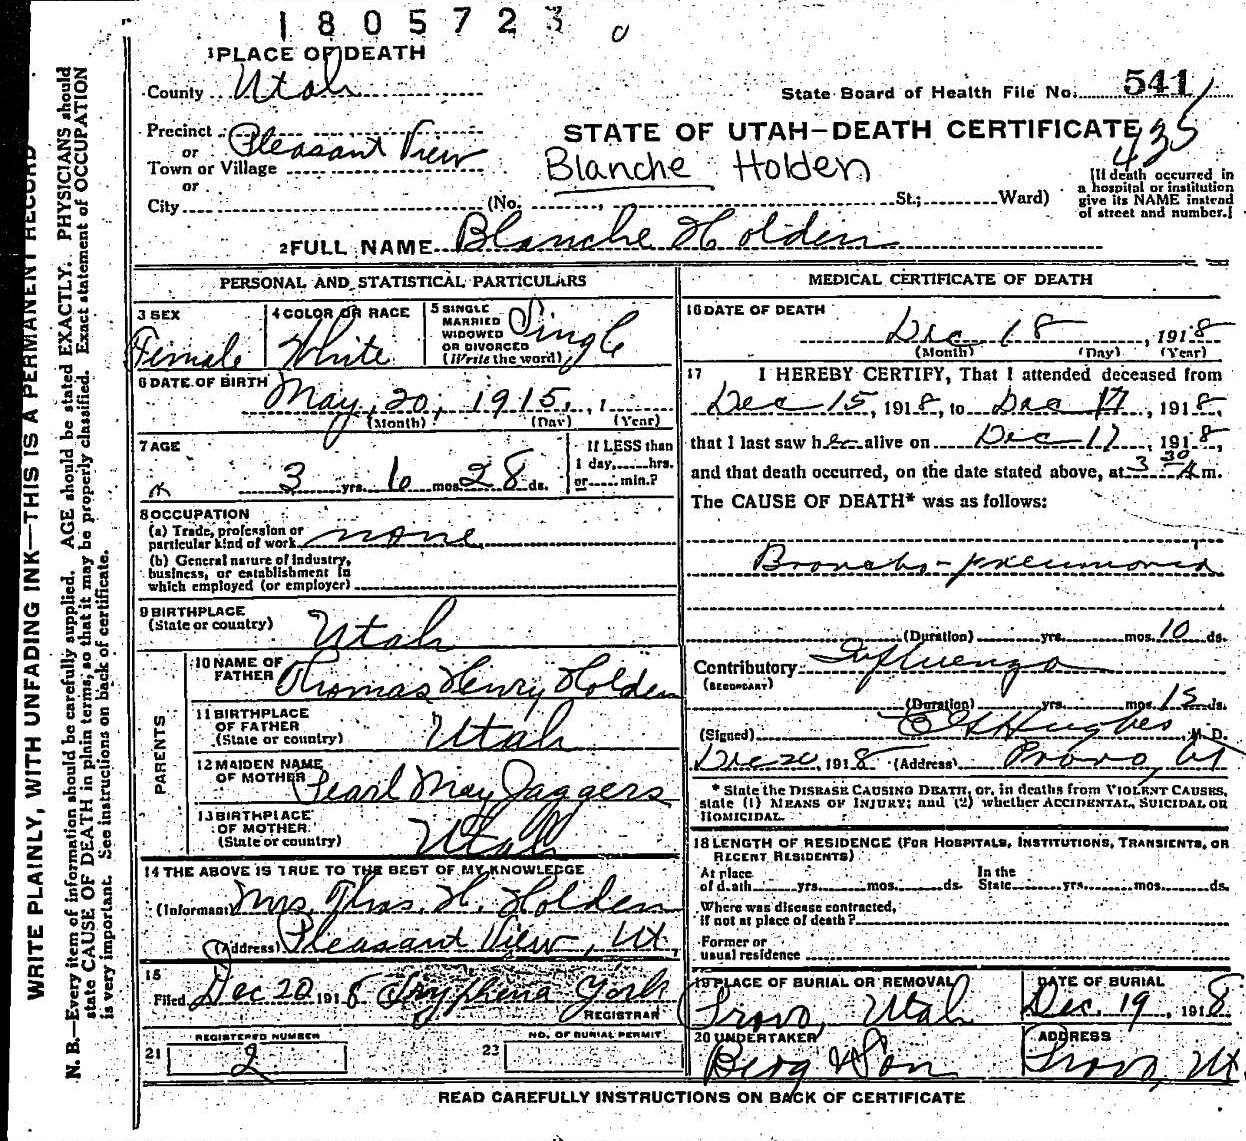 1805723
1 PLACE OF DEATH
County Utah
State Board of Health File No. 541
435
Precinct Pleasant View
or
Town or Village
or
City
STATE OF UTAH—DEATH CERTIFICATE
Blanche Holden
(No. , St.; Ward)
[If death occurred in
a hospital or institution
give its NAME instead
of street and number.]
2 FULL NAME Blanche Holden
PERSONAL AND STATISTICAL PARTICULARS
3 SEX Female
4 COLOR OR RACE White
5 SINGLE
MARRIED
WIDOWED
OR DIVORCED
(Write the word) Single
6 DATE OF BIRTH May, 20, 1915, 1
(Month) (Day) (Year)
7 AGE
3 yrs. 6 mos. 28 ds.
If LESS than
1 day, hrs.
or min.?
8 OCCUPATION
(a) Trade, profession or
particular kind of work none
(b) General nature of industry,
business, or establishment in
which employed (or employer)
9 BIRTHPLACE
(State or country) Utah
PARENTS
10 NAME OF
FATHER Thomas Henry Holden
11 BIRTHPLACE
OF FATHER
(State or country) Utah
12 MAIDEN NAME
OF MOTHER Pearl May Jaggers
13 BIRTHPLACE
OF MOTHER
(State or country) Utah
14 THE ABOVE IS TRUE TO THE BEST OF MY KNOWLEDGE
(Informant) Mrs. Thos. H. Holden
(Address) Pleasant View, Ut.
15
Filed Dec 20 1918 Tryphena York
REGISTRAR
REGISTERED NUMBER
21 2
NO. OF BURIAL PERMIT
22
MEDICAL CERTIFICATE OF DEATH
16 DATE OF DEATH
Dec 18, 1918
(Month) (Day) (Year)
17 I HEREBY CERTIFY, That I attended deceased from
Dec 15, 1918, to Dec 17, 1918,
that I last saw her alive on Dec 17, 1918,
and that death occurred, on the date stated above, at 3 30 A m.
The CAUSE OF DEATH* was as follows:
Broncho-pneumonia
(Duration) yrs. mos. 10 ds.
Contributory Influenza
(SECONDARY)
(Duration) yrs. mos. 15 ds.
(Signed) Hughes, M. D.
Dec 20, 1918 (Address) Provo, Ut
* State the DISEASE CAUSING DEATH, or, in deaths from VIOLENT CAUSES,
state (1) MEANS OF INJURY; and (2) whether ACCIDENTAL, SUICIDAL OR
HOMICIDAL.
18 LENGTH OF RESIDENCE (FOR HOSPITALS, INSTITUTIONS, TRANSIENTS, OR
RECENT RESIDENTS)
At place
of death yrs. mos. ds.
In the
State yrs. mos. ds.
Where was disease contracted,
if not at place of death?
Former or
usual residence
19 PLACE OF BURIAL OR REMOVAL
Provo, Utah
DATE OF BURIAL
Dec. 19, 1918
20 UNDERTAKER
Berg & Son
ADDRESS
Provo, Ut.
READ CAREFULLY INSTRUCTIONS ON BACK OF CERTIFICATE
WRITE PLAINLY, WITH UNFADING INK—THIS IS A PERMANENT RECORD
N. B.—Every item of information should be carefully supplied. AGE should be stated EXACTLY. PHYSICIANS should
state CAUSE OF DEATH in plain terms, so that it may be properly classified. Exact statement of OCCUPATION
is very important. See instructions on back of certificate.